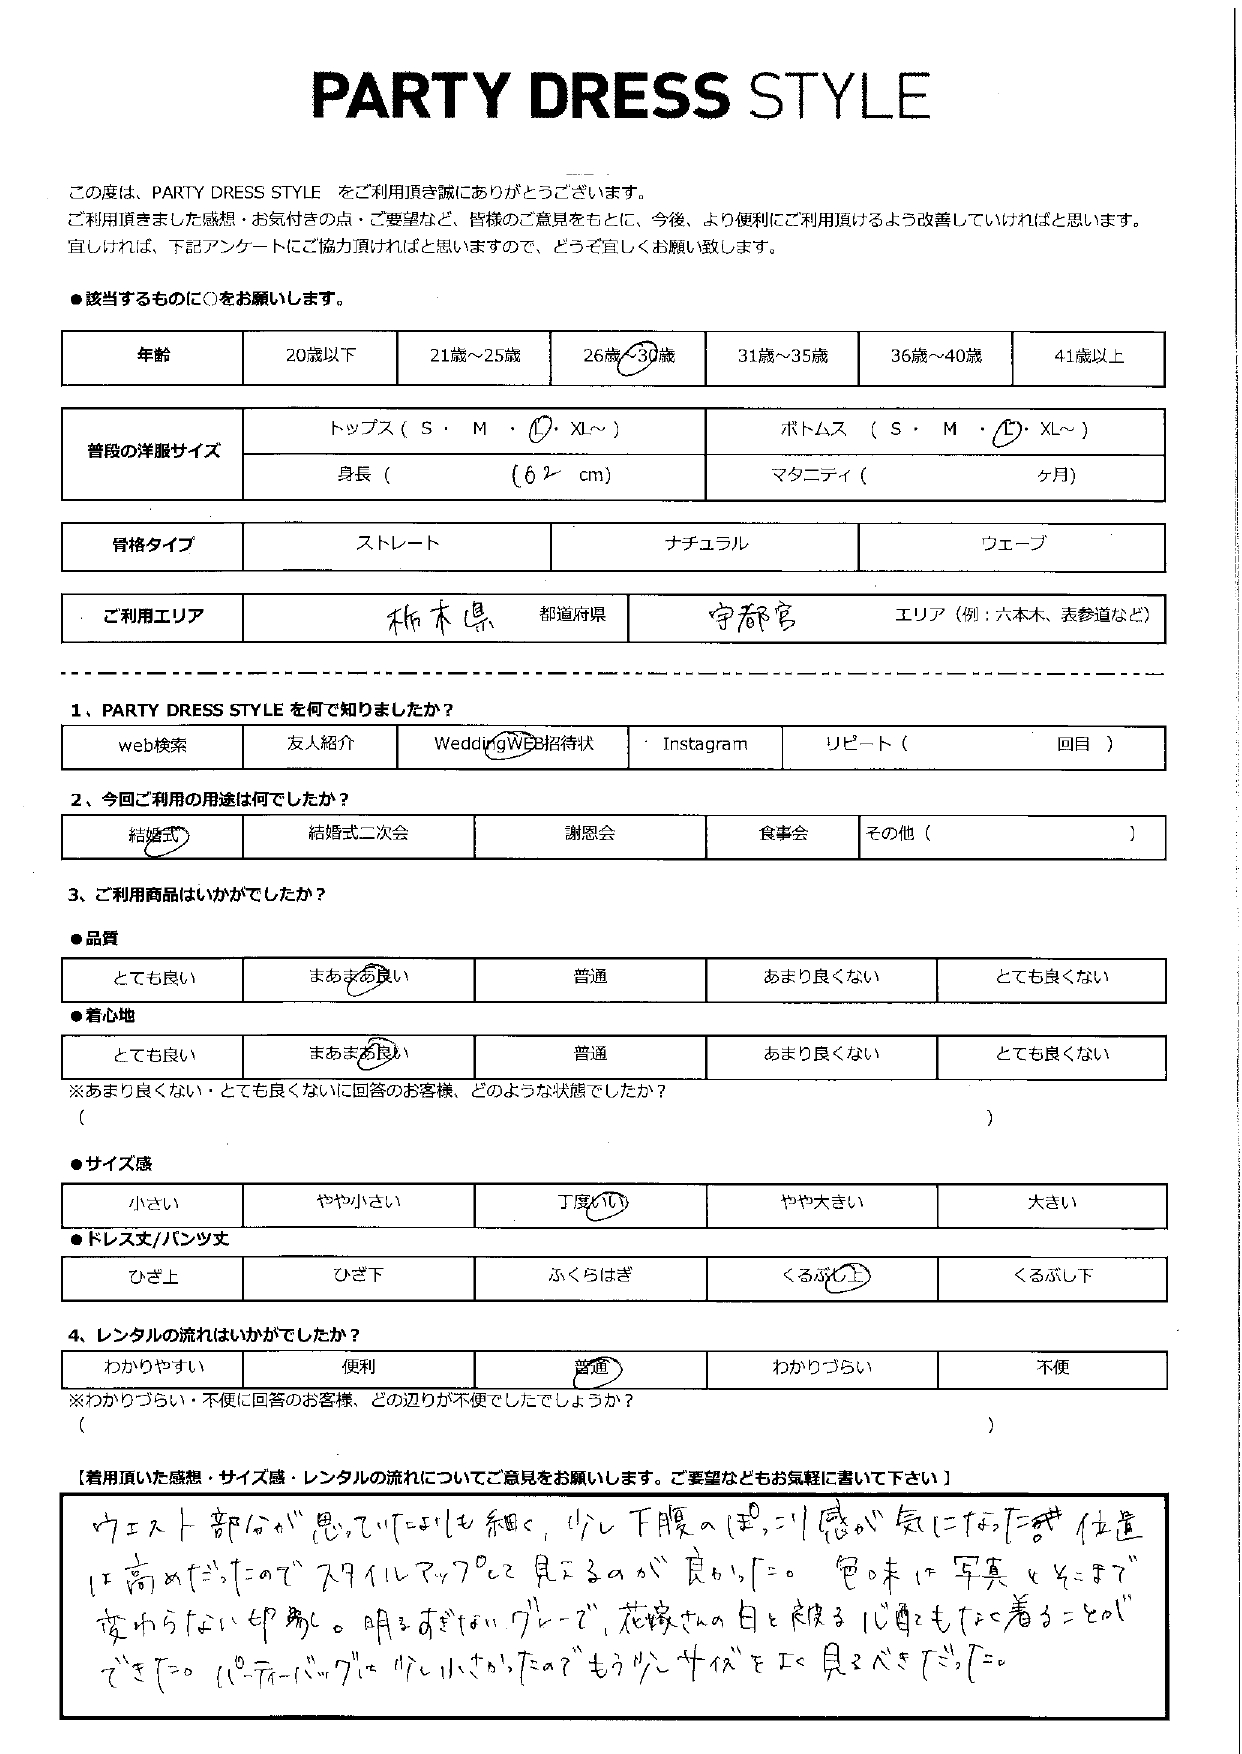 PARTY DRESS STYLE
この度は、PARTY DRESS STYLE をご利用頂き誠にありがとうございます。
ご利用頂きました感想・お気付きの点・ご要望など、皆様のご意見をもとに、今後、より便利にご利用頂けるよう改善していければと思います。
宜しければ、下記アンケートにご協力頂ければと思いますので、どうぞ宜しくお願い致します。
●該当するものに○をお願いします。
年齢 20歳以下 21歳～25歳 26歳～30歳 31歳～35歳 36歳～40歳 41歳以上
普段の洋服サイズ トップス ( S ・ M ・ L ・ XL～ ) ボトムス ( S ・ M ・ L ・ XL～ )
身長 ( 162 cm) マタニティ ( ケ月)
骨格タイプ ストレート ナチュラル ウェーブ
ご利用エリア 栃木県 都道府県 宇都宮 エリア（例：六本木、表参道など）
1、PARTY DRESS STYLE を何で知りましたか？
web検索 友人紹介 WeddingWEB招待状 Instagram リピート ( 回目 )
2、今回ご利用の用途は何でしたか？
結婚式 結婚式二次会 謝恩会 食事会 その他 ( )
3、ご利用商品はいかがでしたか？
●品質
とても良い まあまあ良い 普通 あまり良くない とても良くない
●着心地
とても良い まあまあ良い 普通 あまり良くない とても良くない
※あまり良くない・とても良くないに回答のお客様、どのような状態でしたか？
( )
●サイズ感
小さい やや小さい 丁度いい やや大きい 大きい
●ドレス丈/パンツ丈
ひざ上 ひざ下 ふくらはぎ くるぶし上 くるぶし下
4、レンタルの流れはいかがでしたか？
わかりやすい 便利 普通 わかりづらい 不便
※わかりづらい・不便に回答のお客様、どの辺りが不便でしたでしょうか？
( )
【着用頂いた感想・サイズ感・レンタルの流れについてご意見をお願いします。ご要望などもお気軽に書いて下さい 】
ウエスト部分が思っていたよりも細く、少し下腹のぽっこり感が気になった。位置
は高めだったのでスタイルアップして見えるのが良かった。色味は写真とそこまで
変わらない印象。明るすぎないグレーで、花嫁さんの白と被る心配もなく着ることが
できた。パーティーバッグは少し小さかったのでもう少しサイズをよく見るべきだった。